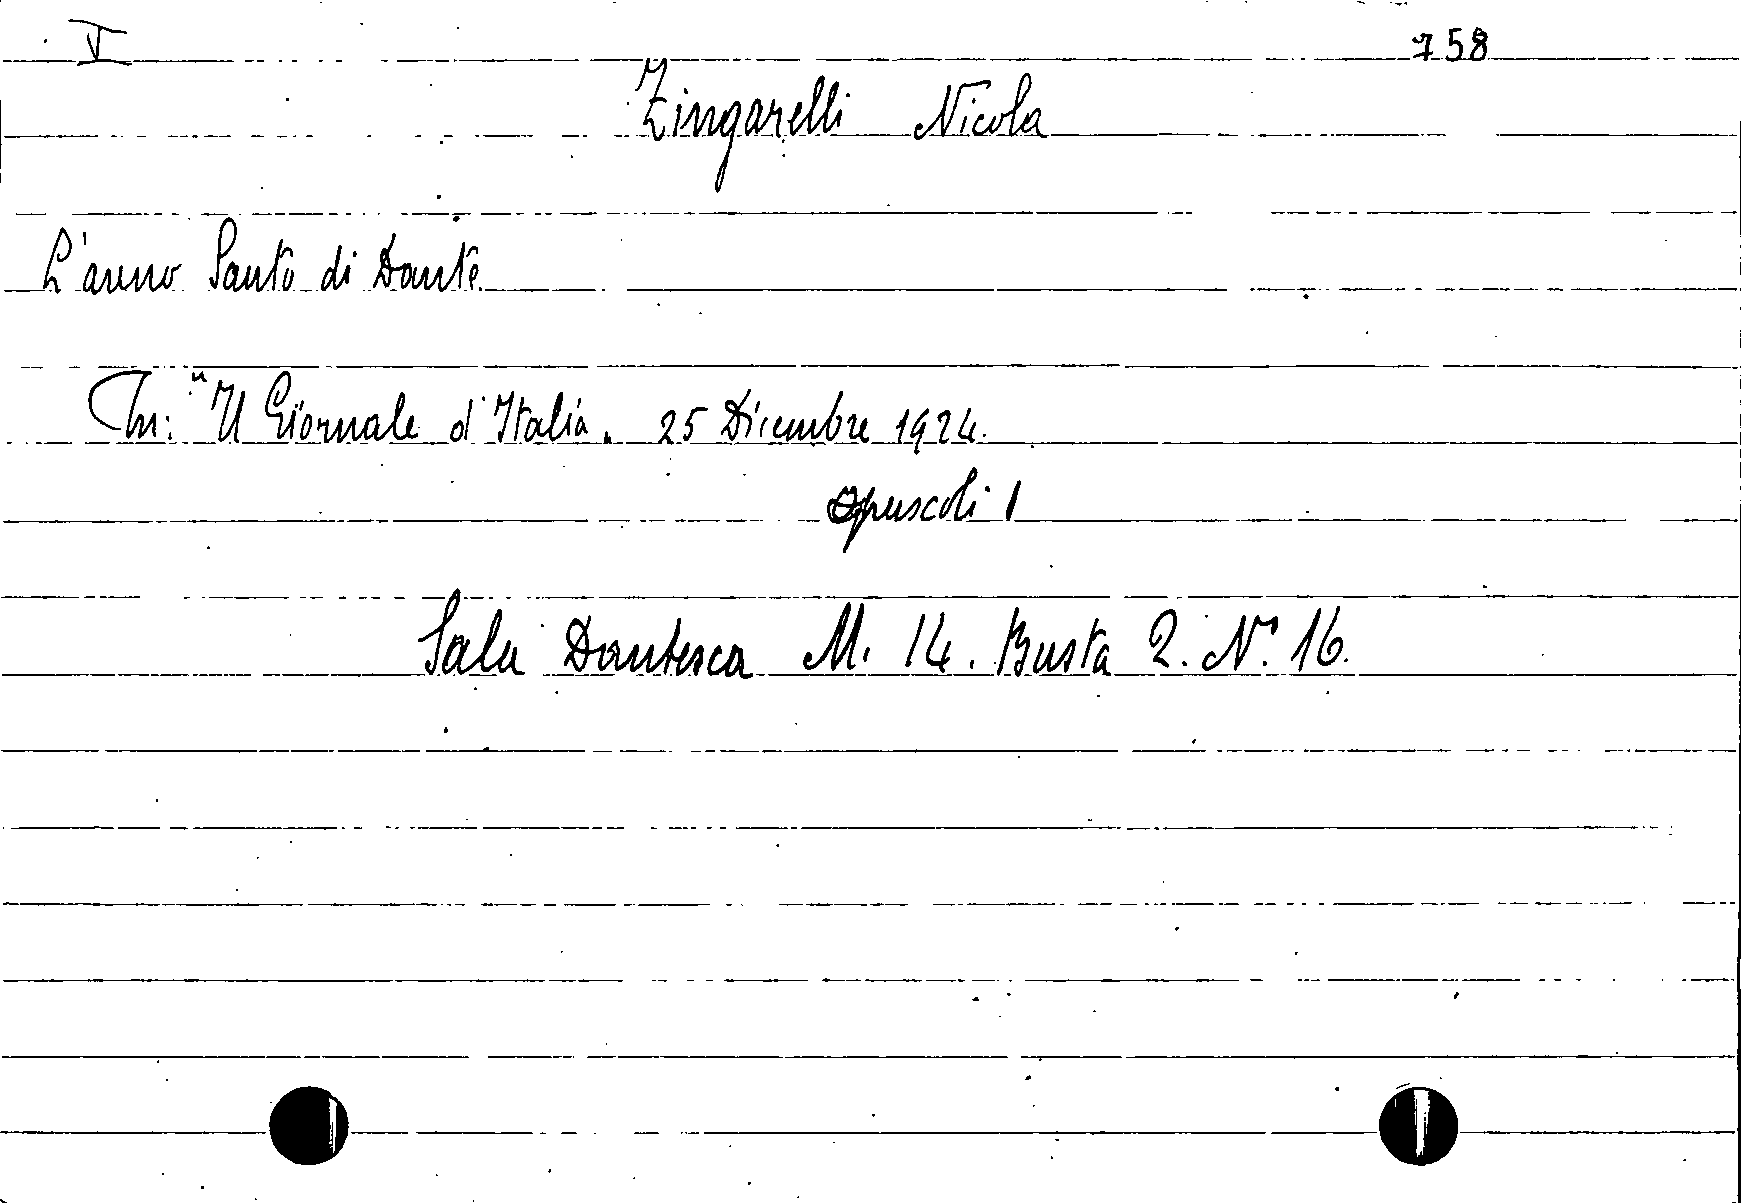 V 758
Zingarelli Nicola
L'anno Santo di Dante.
In: "Il Giornale d'Italia„ 25 Dicembre 1924.
Opuscoli 1
Sala Dantesca M. 14. Busta 2. N° 16.